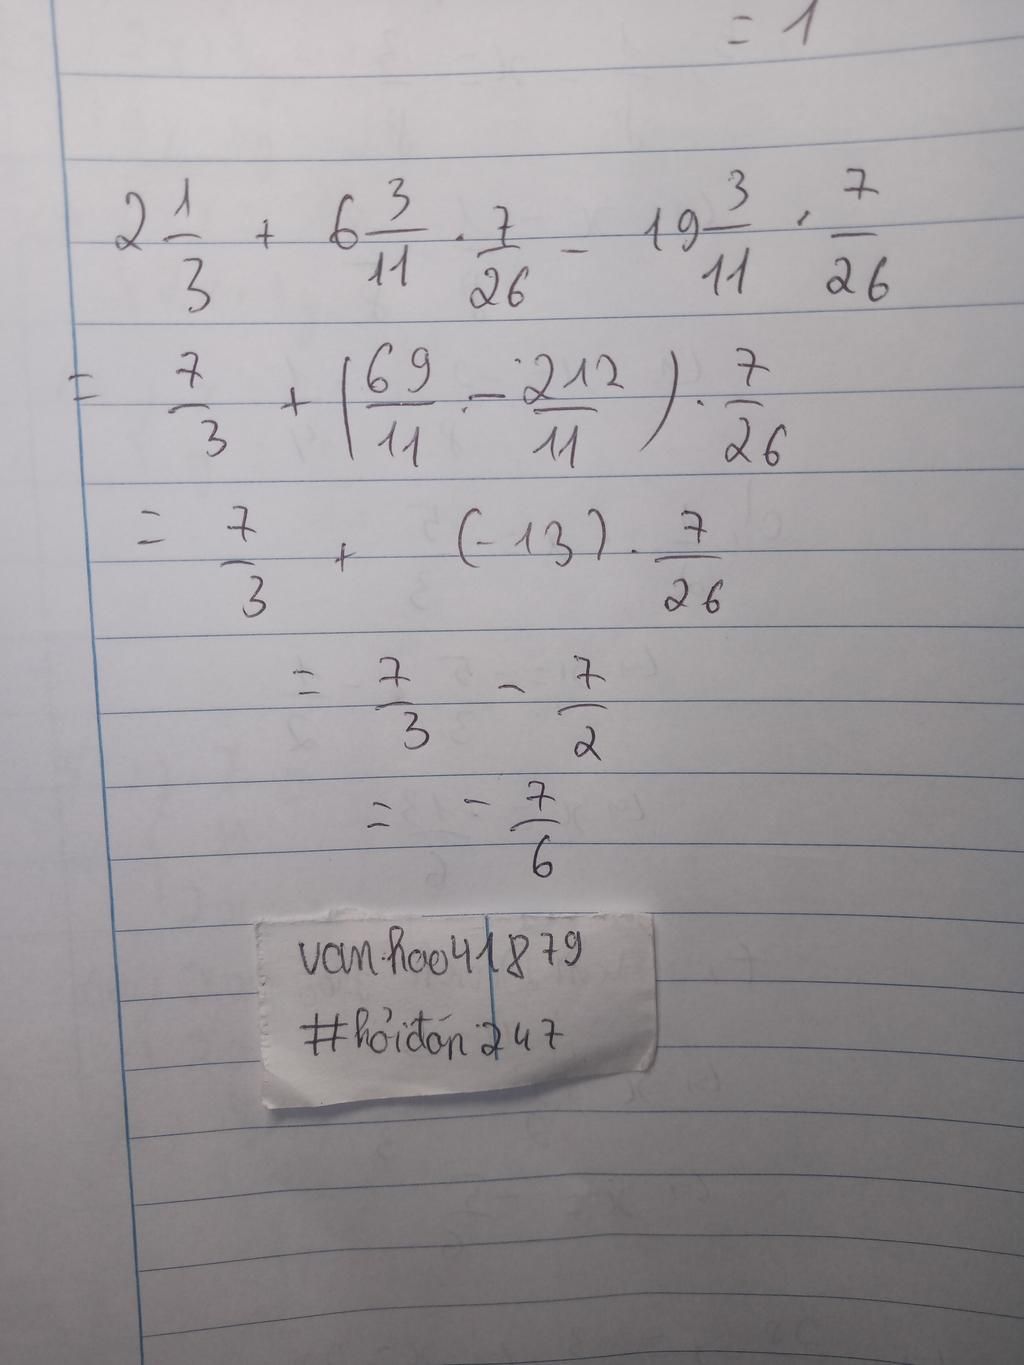 = 1
2 1/3 + 6 3/11 . 7/26 - 19 3/11 . 7/26
= 7/3 + (69/11 - 212/11) . 7/26
= 7/3 + (-13) . 7/26
= 7/3 - 7/2
= - 7/6
vanhoo41879
#hỏiđán247